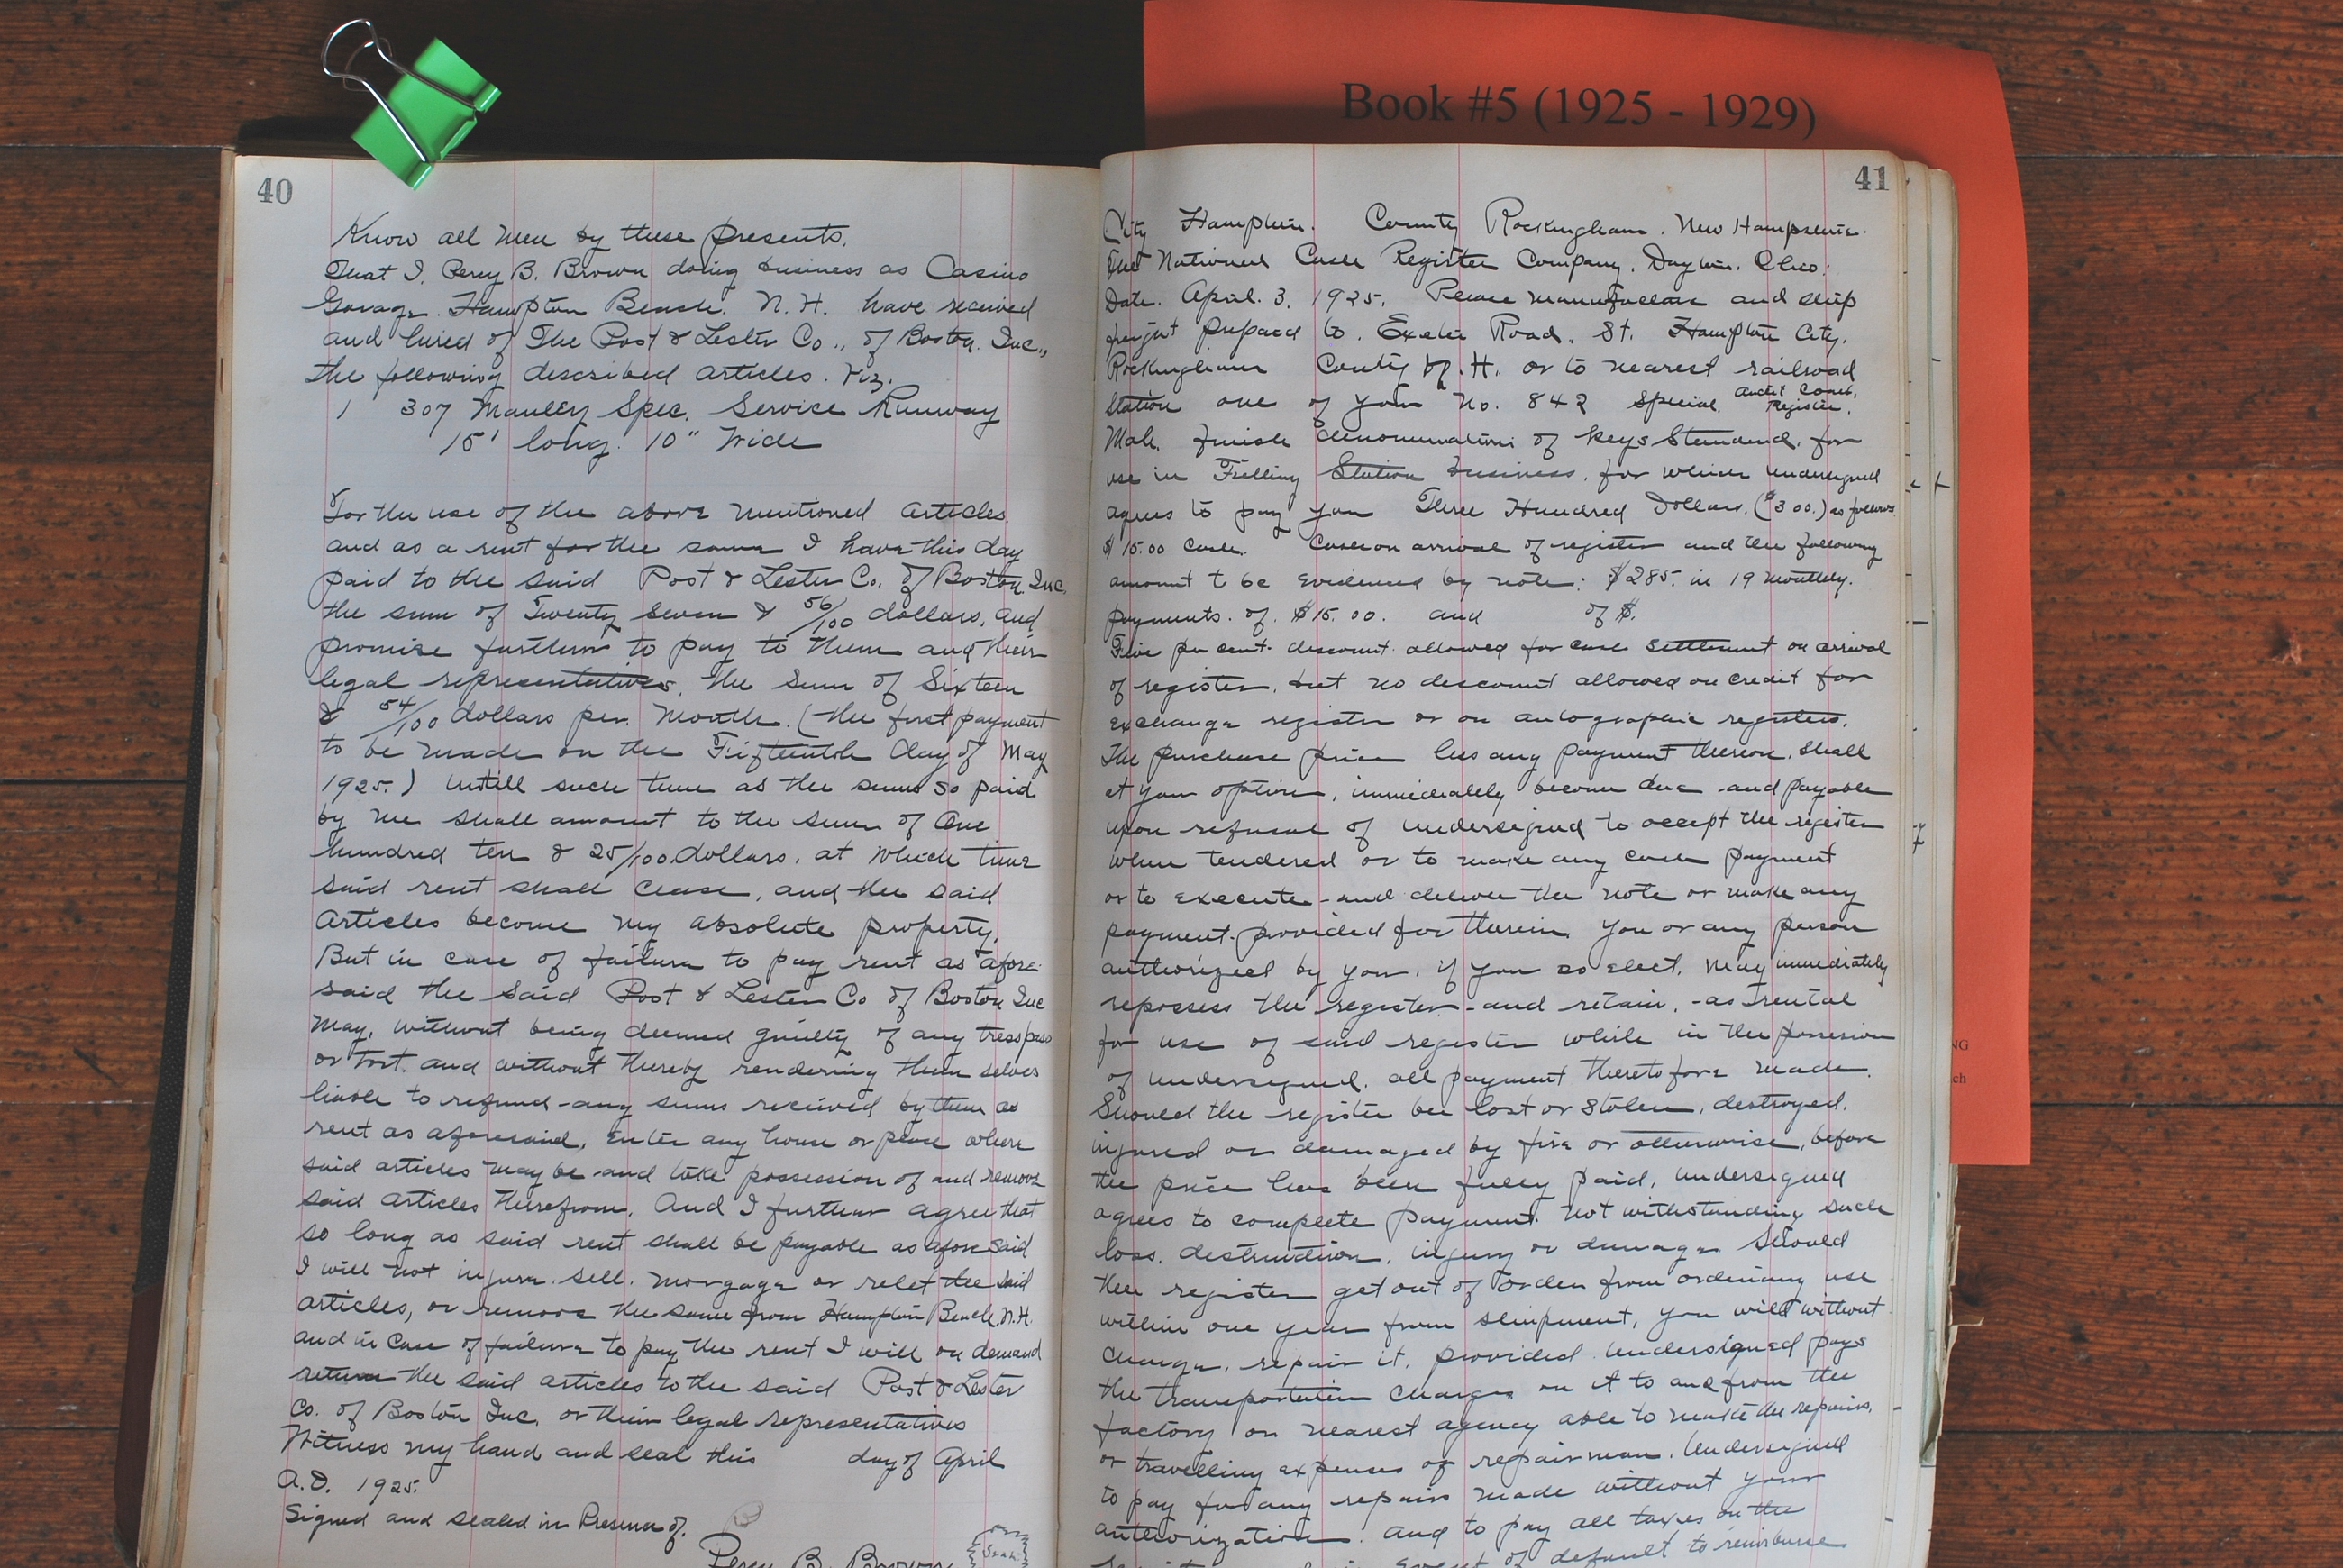 Book #5 (1925 - 1929)
40
Know all Men by these presents.
That I, Percy B. Brown doing business as Casino
Garage. Hampton Beach. N. H. have received
and hired of The Post & Lester Co., of Boston. Inc.,
the following described articles. Viz.
1 307 Manley Spec. Service Runway
15' long. 10" Wide
For the use of the above mentioned articles.
and as a rent for the same I have this day
paid to the said Post & Lester Co. of Boston. Inc.
the sum of Twenty seven & 56/100 dollars, and
promise further to pay to them and their
legal representatives, the sum of Sixteen
& 54/100 dollars per. Month. (the first payment
to be made on the Fifteenth day of May
1925.) untill such time as the sums so paid
by me shall amount to the sum of One
hundred ten & 25/100 dollars, at which time
said rent shall cease, and the said
articles become my absolute property.
But in case of failure to pay rent as afore-
said the said Post & Lester Co of Boston Inc
may, without being deemed guilty of any tresspass
or tort. and without thereby rendering them selves
liable to refund any sums received by them as
rent as aforesaid, enter any house or place where
said articles may be and take possession of and remove
said articles therefrom. And I further agree that
so long as said rent shall be payable as afore said
I will not injure. sell. morgage or relet the said
articles, or remove the same from Hampton Beach. N.H.
and in case of failure to pay the rent I will on demand
return the said articles to the said Post & Lester
Co. of Boston Inc. or their legal representatives
Witness my hand and seal this day of April
A.D. 1925.
Signed and sealed in Presence of.
Percy B. Brown
Seal
41
City Hampton. County Rockingham. New Hampshire.
The National Cash Register Company. Dayton. Ohio:
Date. April. 3. 1925. Please manufacture and ship
freight prepaid to. Exeter Road. St. Hampton City.
Rockingham County N. H. or to nearest railroad
station one of your No. 842 Special. Audit Count. Register.
Mah. finish denominations of keys Standard. for
use in Filling Station business. for which undersigned
agrees to pay you Three Hundred Dollars. ($300.) as follows
$15.00 cash. Cash on arrival of register and the following
amount to be evidenced by note: $285. in 19 monthly.
payments. of. $15.00. and of $.
Five per cent. discount allowed for cash settlement on arrival
of register, but no discount allowed on credit for
exchange register or on autographic registers.
The purchase price less any payment thereon, shall
at your option, immediately become due and payable
upon refusal of undersigned to accept the register
when tendered or to make any cash payment
or to execute and deliver the note or make any
payment provided for therein. You or any person
authorized by you, if you so elect, may immediately
repossess the register and retain, as rental
for use of said register while in the possession
of undersigned. all payment theretofore made.
Should the register be lost or stolen, destroyed.
injured or damaged by fire or otherwise, before
the price has been fully paid, undersigned
agrees to complete payment. not withstanding such
loss. destruction, injury or damage. Should
the register get out of order from ordinary use
within one year from shipment, you will without
charge, repair it, provided undersigned pays
the transportation charges on it to and from the
factory or nearest agency able to make the repairs,
or travelling expenses of repairman. Undersigned
to pay for any repairs made without your
authorization. and to pay all taxes on the
event of default to reimburse
NG
ch